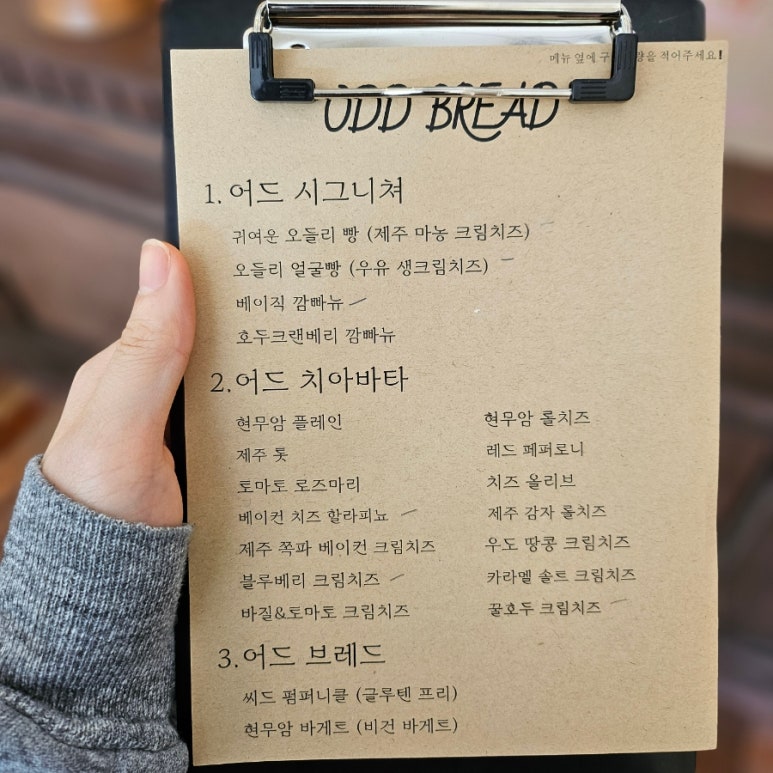 메뉴 옆에 구 량을 적어주세요!
ODD BREAD
1. 어드 시그니쳐
귀여운 오들리 빵 (제주 마농 크림치즈)
오들리 얼굴빵 (우유 생크림치즈)
베이직 깜빠뉴
호두크랜베리 깜빠뉴
2. 어드 치아바타
현무암 플레인
제주 톳
토마토 로즈마리
베이컨 치즈 할라피뇨
제주 쪽파 베이컨 크림치즈
블루베리 크림치즈
바질&토마토 크림치즈
현무암 롤치즈
레드 페퍼로니
치즈 올리브
제주 감자 롤치즈
우도 땅콩 크림치즈
카라멜 솔트 크림치즈
꿀호두 크림치즈
3. 어드 브레드
씨드 펌퍼니클 (글루텐 프리)
현무암 바게트 (비건 바게트)